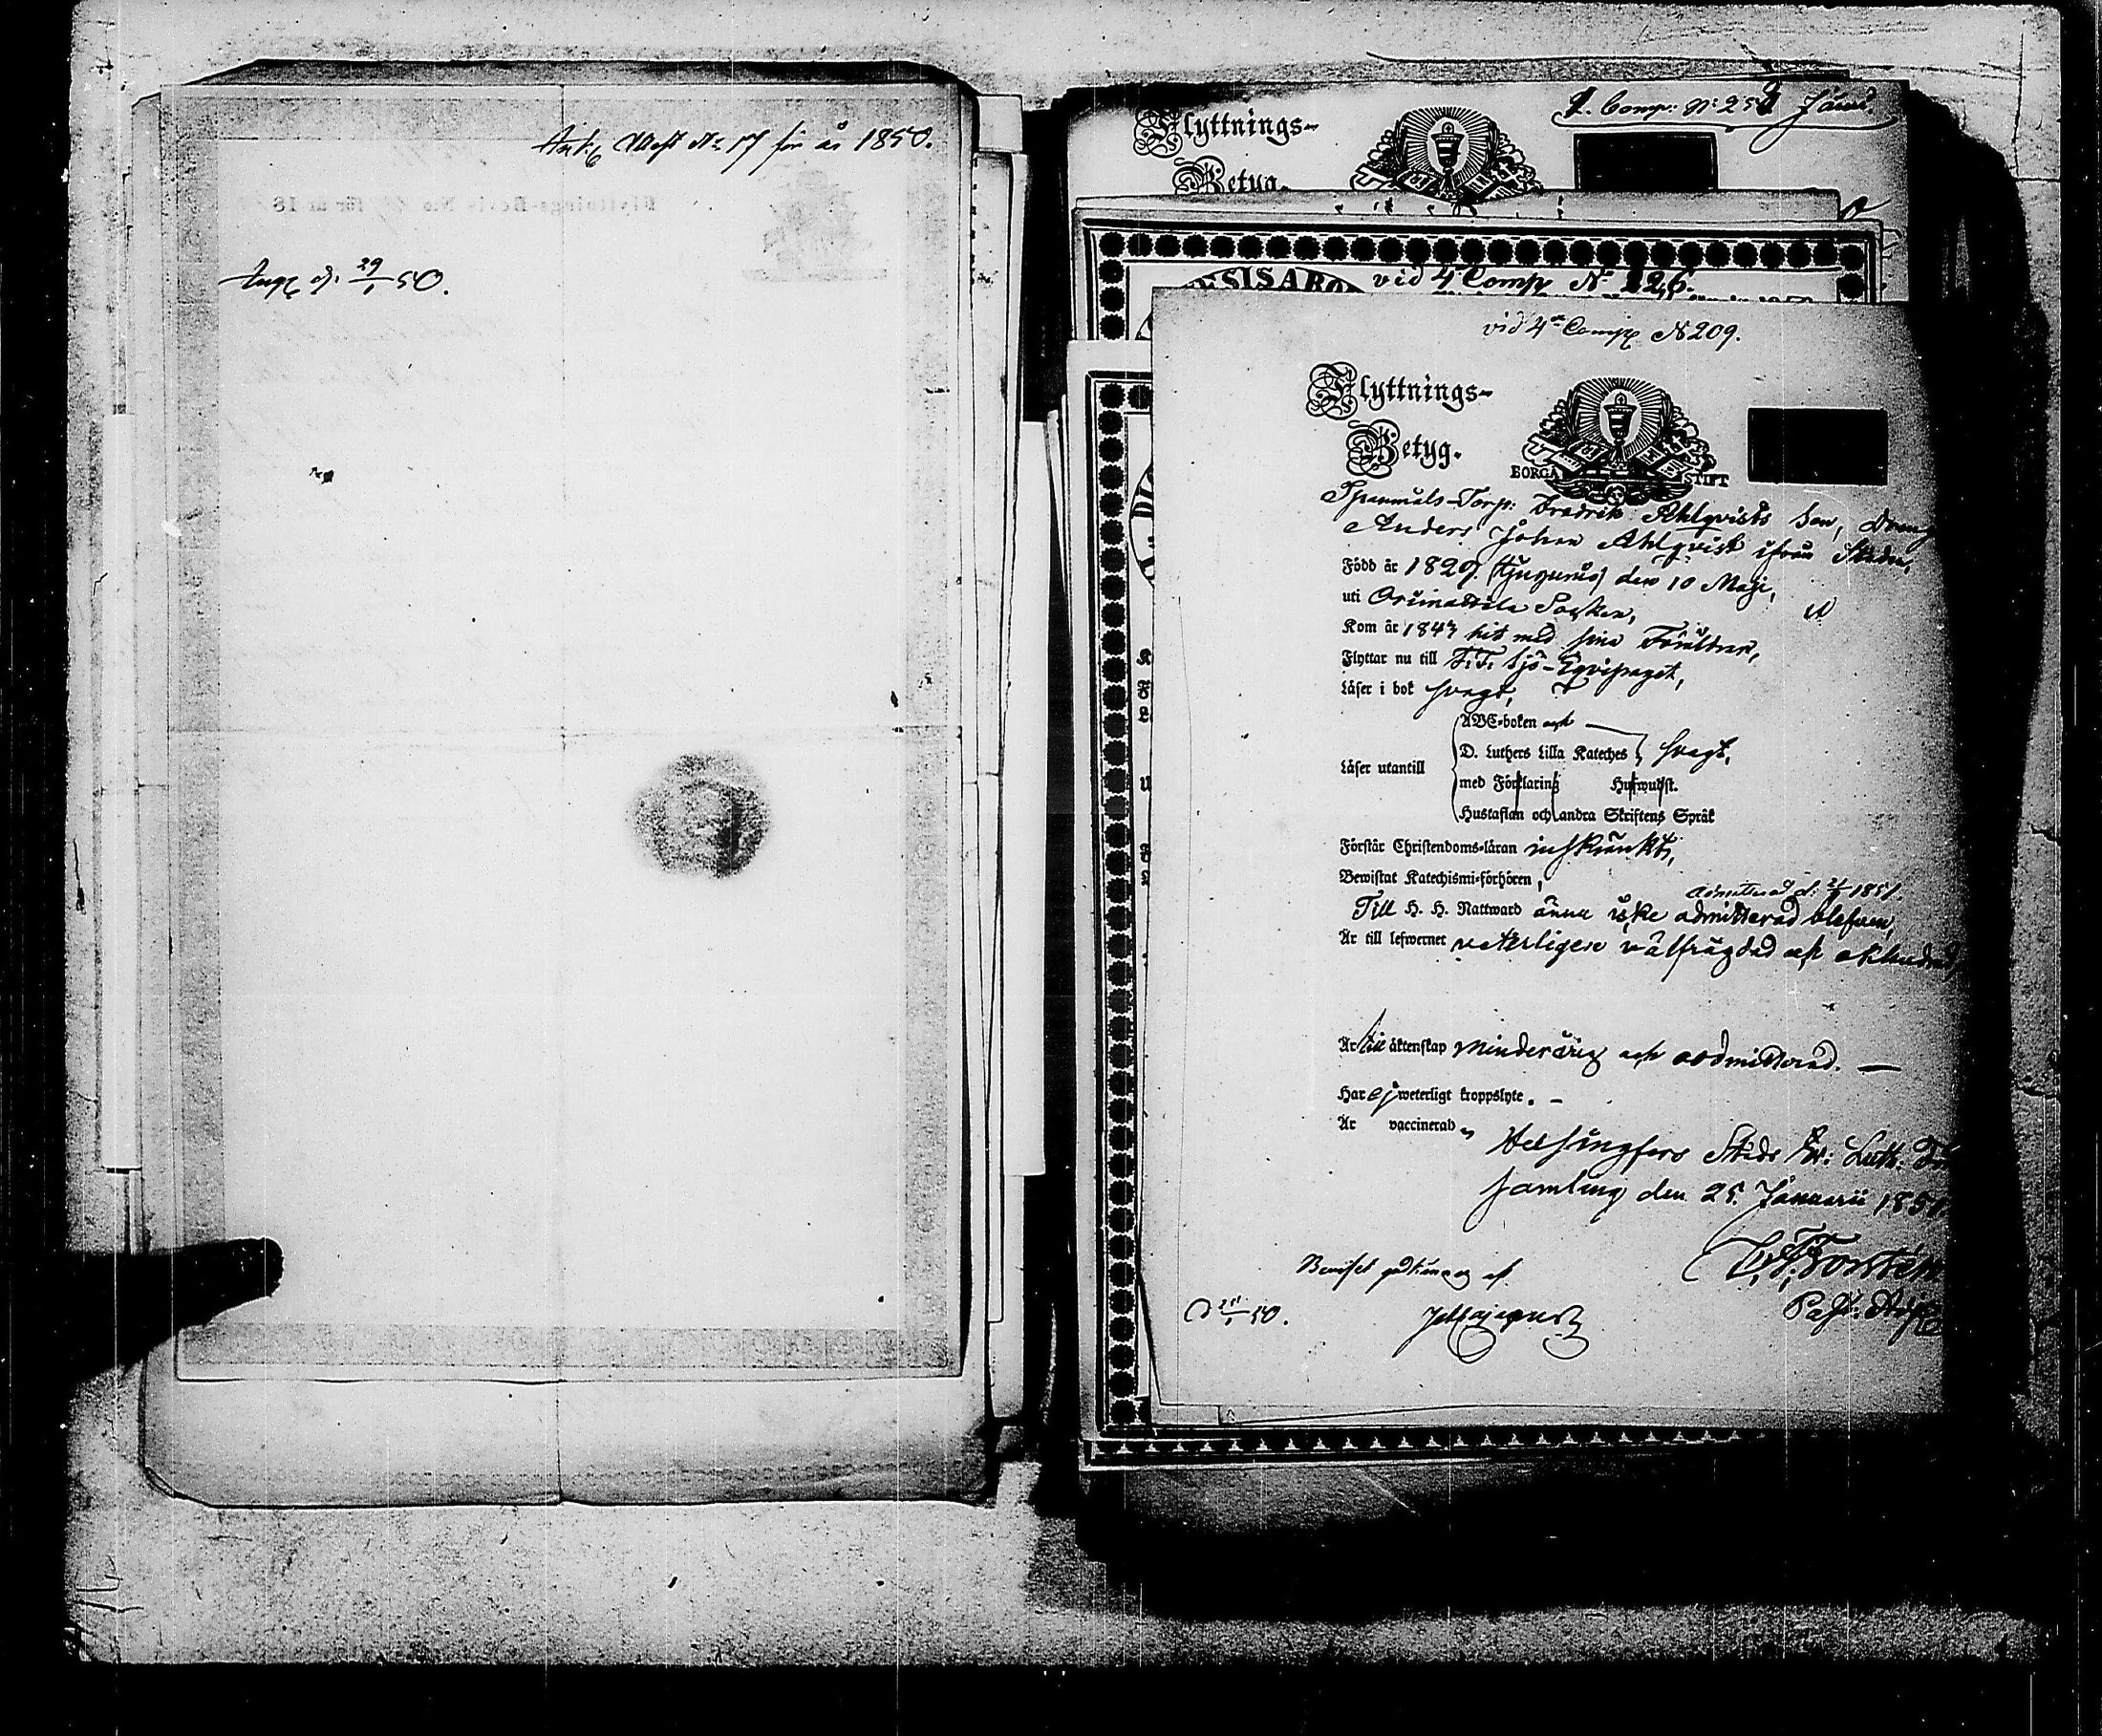 Ank. Attest No 17 för år 1850.
Flyttnings-Bevis No för år 18
d. 29/1 50.
Flyttnings-
Betyg.
1. Comp: No 25
vid 4 Comp No 226.
vid 4de Comp No 209.
Flyttnings-
Betyg.
BORGÅ STIFT
Torp: Fredrik Ahlqvists Son, Dräng
Anders Johan Ahlqvist ifrån Staden,
Född år 1829 (tjugunio) den 10 Maji,
uti Orimattila Socken,
Kom år 1843 hit med sina Föräldrar,
Flyttar nu till F.F. Sjö-Eqvipaget,
Läser i bok svagt,
Läser utantill
ABC-boken och
D. Luthers Lilla Kateches svagt,
med Förklaring Hufwudst.
Hustaflan och andra Skriftens Språk
Förstår Christendoms-läran inskränkt,
Bewistat Katechismi-förhören,
Till H. H. Nattward ännu icke admitterad blefven,
Är till lefwernet veterligen välfrägdad och oklandrad,
Är till äktenskap minderårig och oadmitterad. —
Har ej weterligt kroppslyte. -
Är vaccinerad,
Helsingfors Stads Ev: Luth. För
samling den 25 Januarii 185
Beviset af
Past: Adj